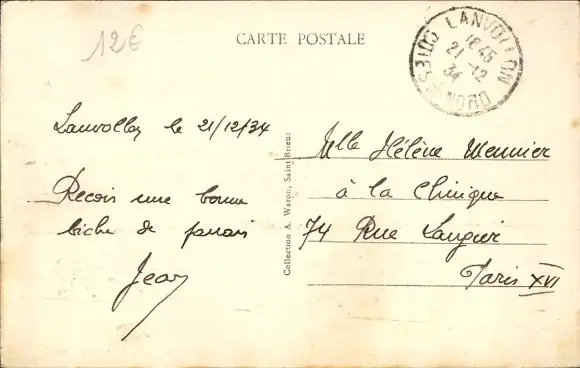 12€
CARTE POSTALE
LANVOLLON
16 45
21 -12
34
CÔTES DU NORD
Lanvollon le 21/12/34
Reçois une bonne
biche de
Jean
Collection A. Waron, Saint-Brieuc
Mlle Hélène Meunier
à la Clinique
74 Rue Laugier
Paris XVI